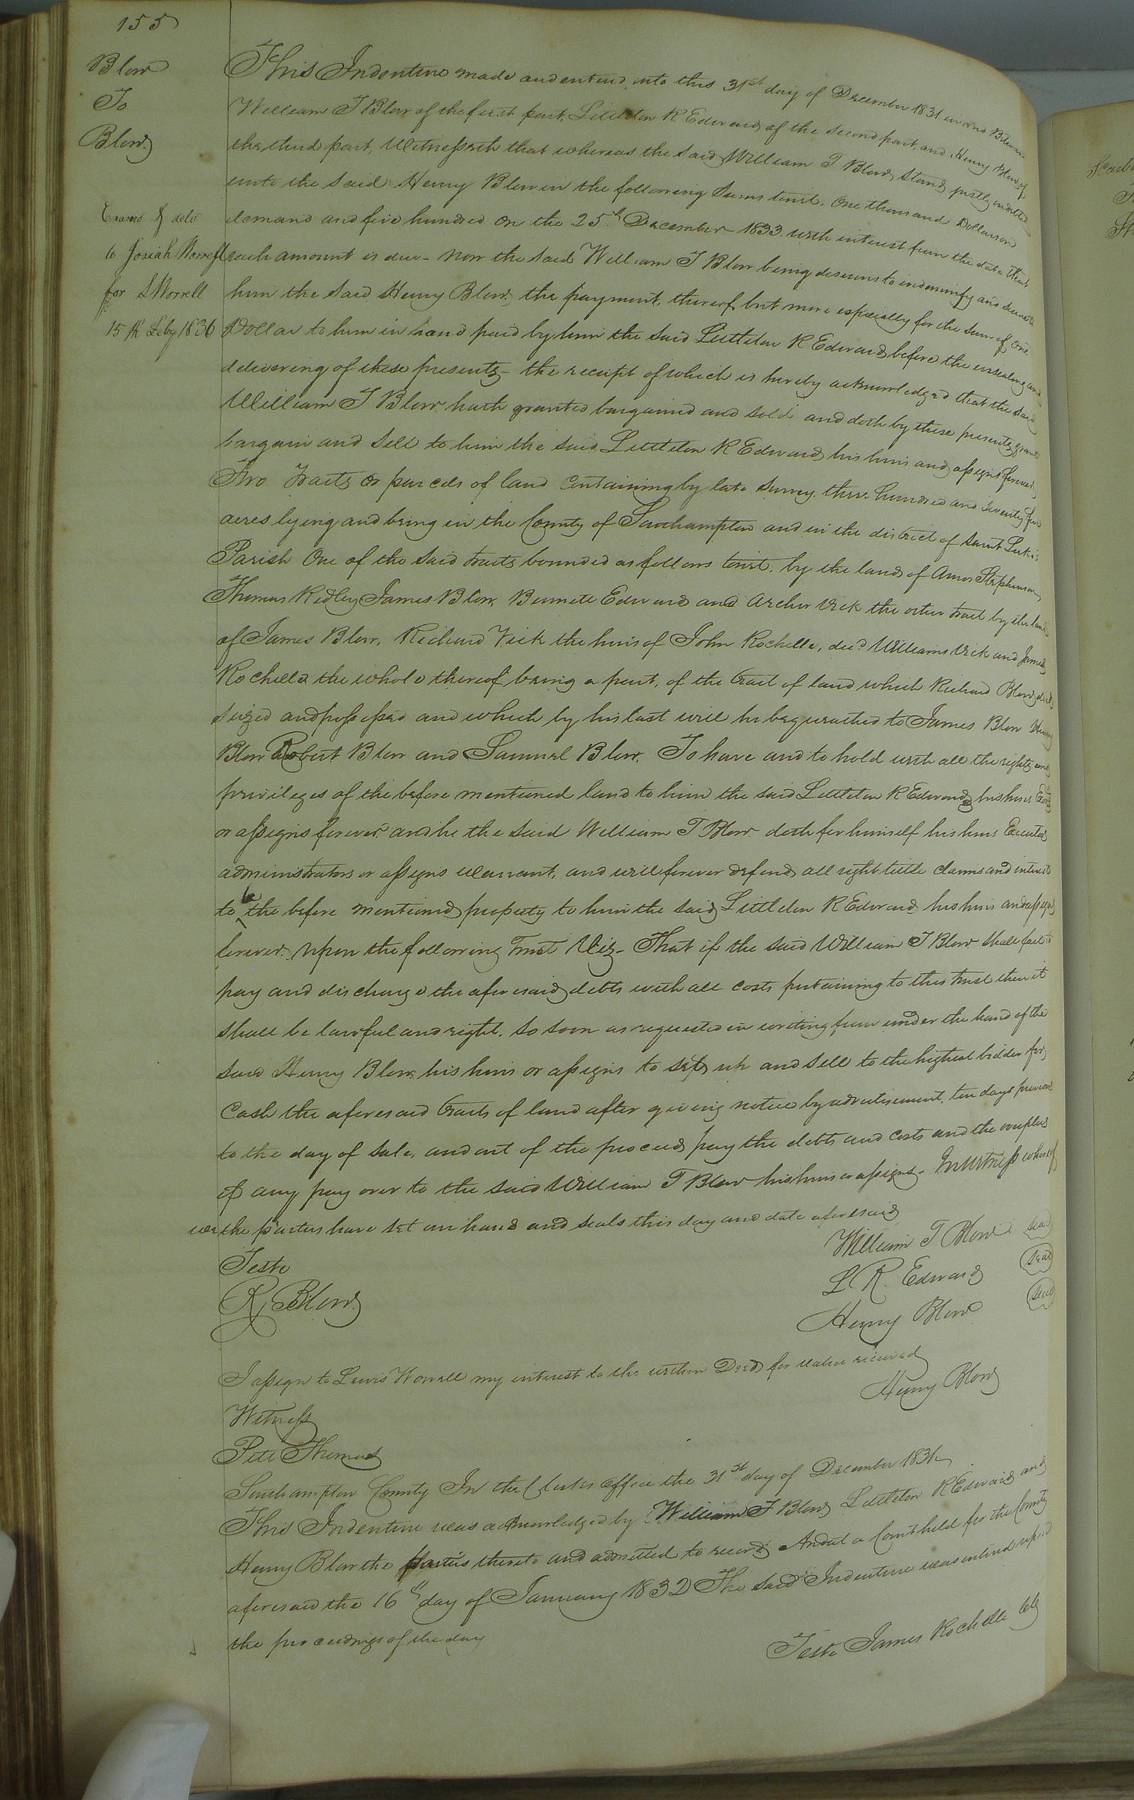 155
Blow
To
Blow
Exams & deld
to Josiah Worrell
for L Worrell
15th Feby 1836
This Indenture made and entered into this 31st day of December 1831 between
William T Blow of the first part, Littleton R Edwards of the second part and Henry Blow of
the third part, Witnesseth that whereas the said William T Blow, stands justly indebted
unto the said Henry Blow in the following sums towit. One thousand Dollars on
demand and five hundred on the 25th December 1833 with interest from the date that
each amount is due - now the said William T Blow being desirous to indemnify and secure to
him the said Henry Blow, the payment thereof, but more especially for the sum of one
Dollar to him in hand paid by him the said Littleton R Edwards before the ensealing and
delivering of these presents - the receipt of which is hereby acknowledged that the said
William T Blow hath granted bargained and sold and doth by these presents, grant
bargain and sell to him the said Littleton R Edwards his heirs and assigns forever,
Two Tracts or parcels of land containing by late survey three hundred and seventy four
acres lying and being in the County of Southampton and in the district of Saint Lukes
Parish One of the said tracts bounded as follows towit. by the lands of Amos Stephenson
Thomas Ridley, James Blow, Burnette Edwards and Archer Vick the other tract by the lands
of James Blow, Richard Vick the heirs of John Rochelle, decd Williams Vick and James
Rochelle the whole thereof being a part, of the tract of land which Richard Blow died
seized and possessed and which by his last will he bequeathed to James Blow Henry
Blow Robert Blow and Samuel Blow. To have and to hold with all the rights and
privileges of the before mentioned land to him the said Littleton R Edwards his heirs Exors
or assigns forever and he the said William T Blow doth for himself his heirs Executors
administrators or assigns warrant, and will forever defend all right title claims and interest
to the before mentioned property to him the said Littleton R Edwards his heirs and assigns
forever. Upon the following Trust Viz - That if the said William T Blow shall fail to
pay and discharge the aforesaid debts with all costs pertaining to this trust then it
shall be lawful and right, so soon as requested in writing from under the hand of the
said Henry Blow, his heirs or assigns to set up and sell to the highest bidder for
Cash the aforesaid tracts of land after giving notice by advertisement, ten days previous
to the day of sale, and out of the proceeds pay the debts and costs and the surplus
if any pay over to the said William T Blow his heirs or assigns - In Witness whereof
we the parties have set our hands and seals this day and date aforesaid
William T Blow seal
Teste
L R. Edwards seal
R, Blow
Henry Blow seal
I assign to Lewis Worrell my interest to the within Deed for value received
Henry Blow
Witness
Pete Thomas
Southampton County In the Clerks Office the 31st day of December 1831
This Indenture was acknowledged by William T Blow Littleton R Edwards and
Henry Blow the parties thereto and admitted to record And at a Court held for the County
aforesaid the 16th day of January 1832 The said Indenture was entered upon
the proceedings of the day
Teste James Rochelle Clk